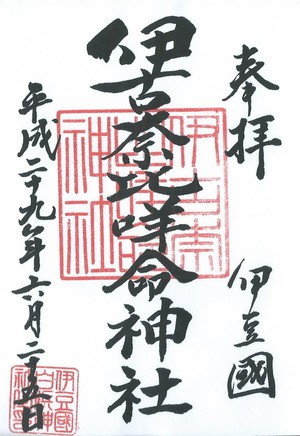 奉拝
伊豆國
伊古奈比咩命神社
平成二十九年六月二十五日
伊古奈比咩命神社
伊豆國白濱神社